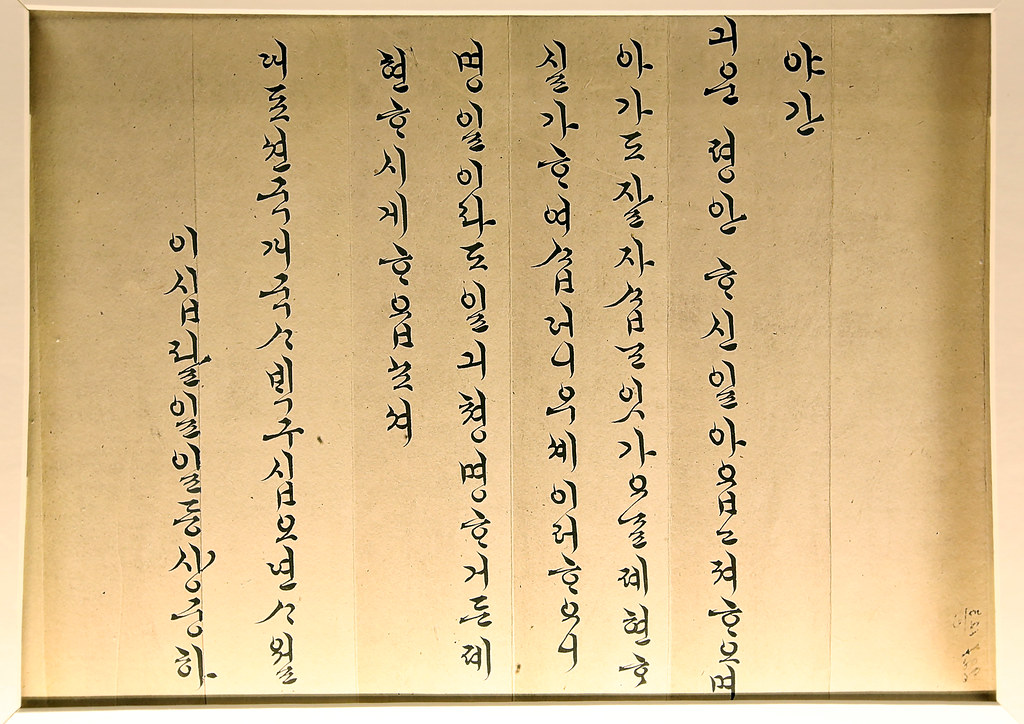 야간
긔운 평안 ᄒᆞ신일아옵고져ᄒᆞ오며
아가도잘자ᄉᆞᆸᄂᆞ잇가오ᄂᆞᆯ폐현ᄒᆞ
실가ᄒᆞ여ᄉᆞᆸ더니우쳬이러ᄒᆞ오니
명일이라도일긔쳥명ᄒᆞ거든폐
현ᄒᆞ시게ᄒᆞ옵쇼셔
대죠션국개국ᄉᆞᄇᆡᆨ구십오년ᄉᆞ월
이십팔일일등상궁하